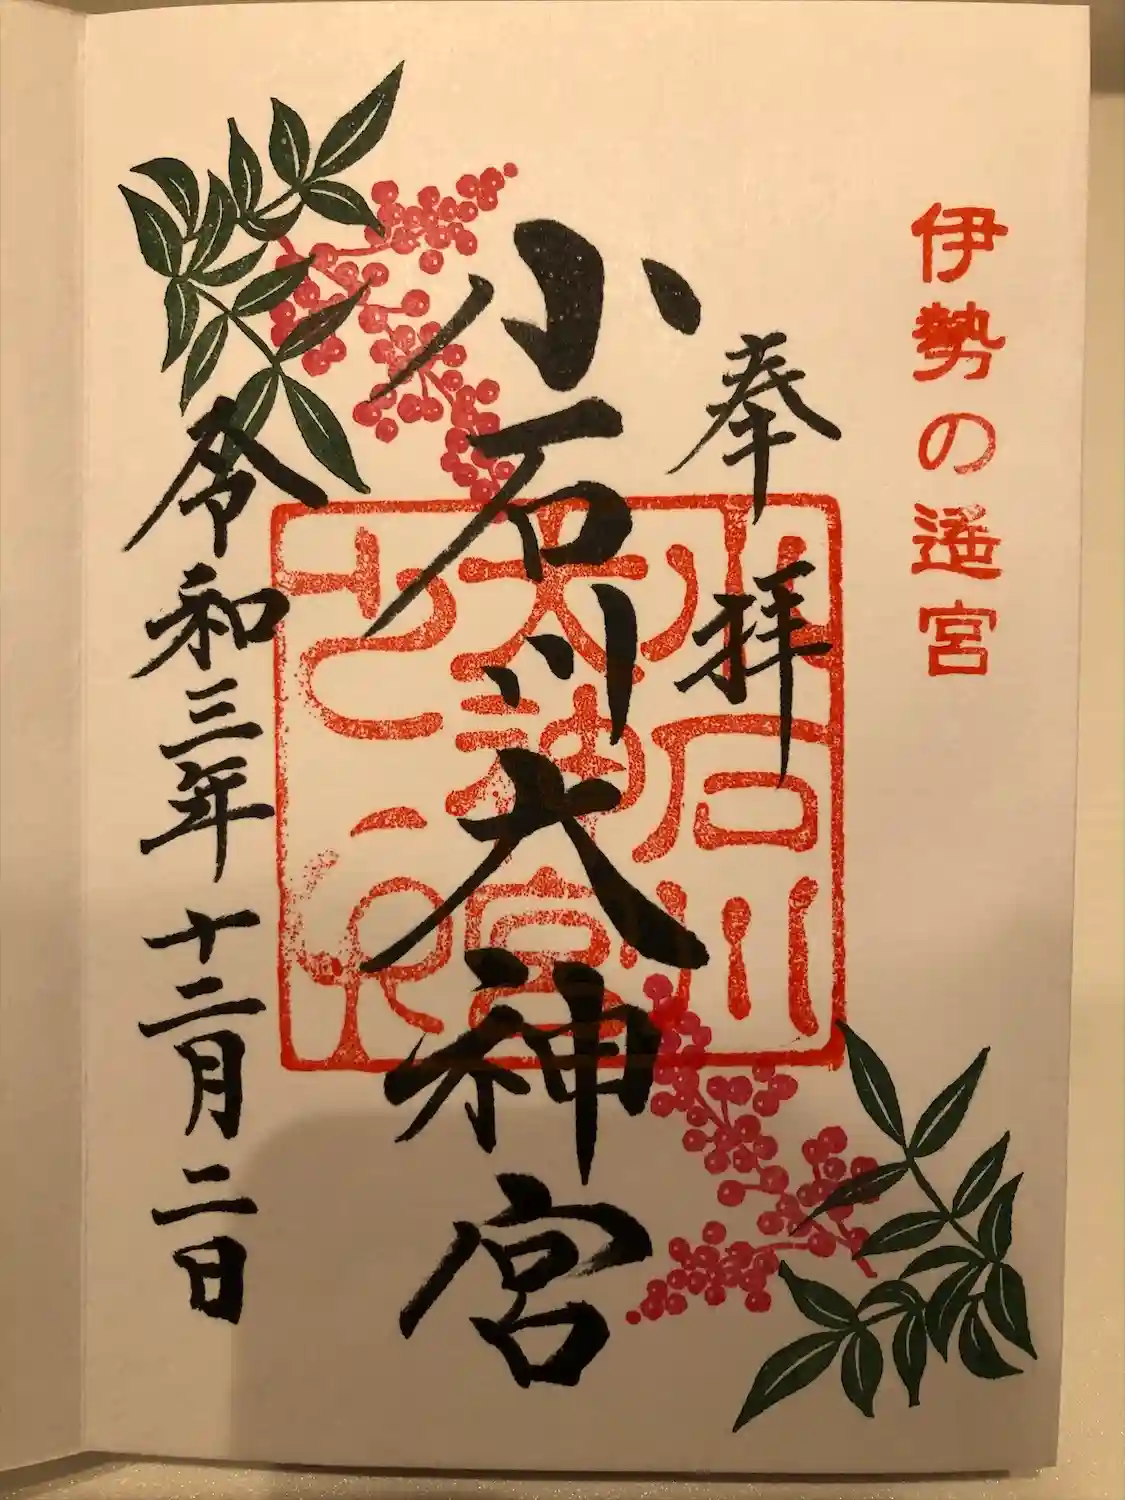 伊勢の遥宮
奉拝
小石川大神宮
小石川大神宮
令和三年十二月二日